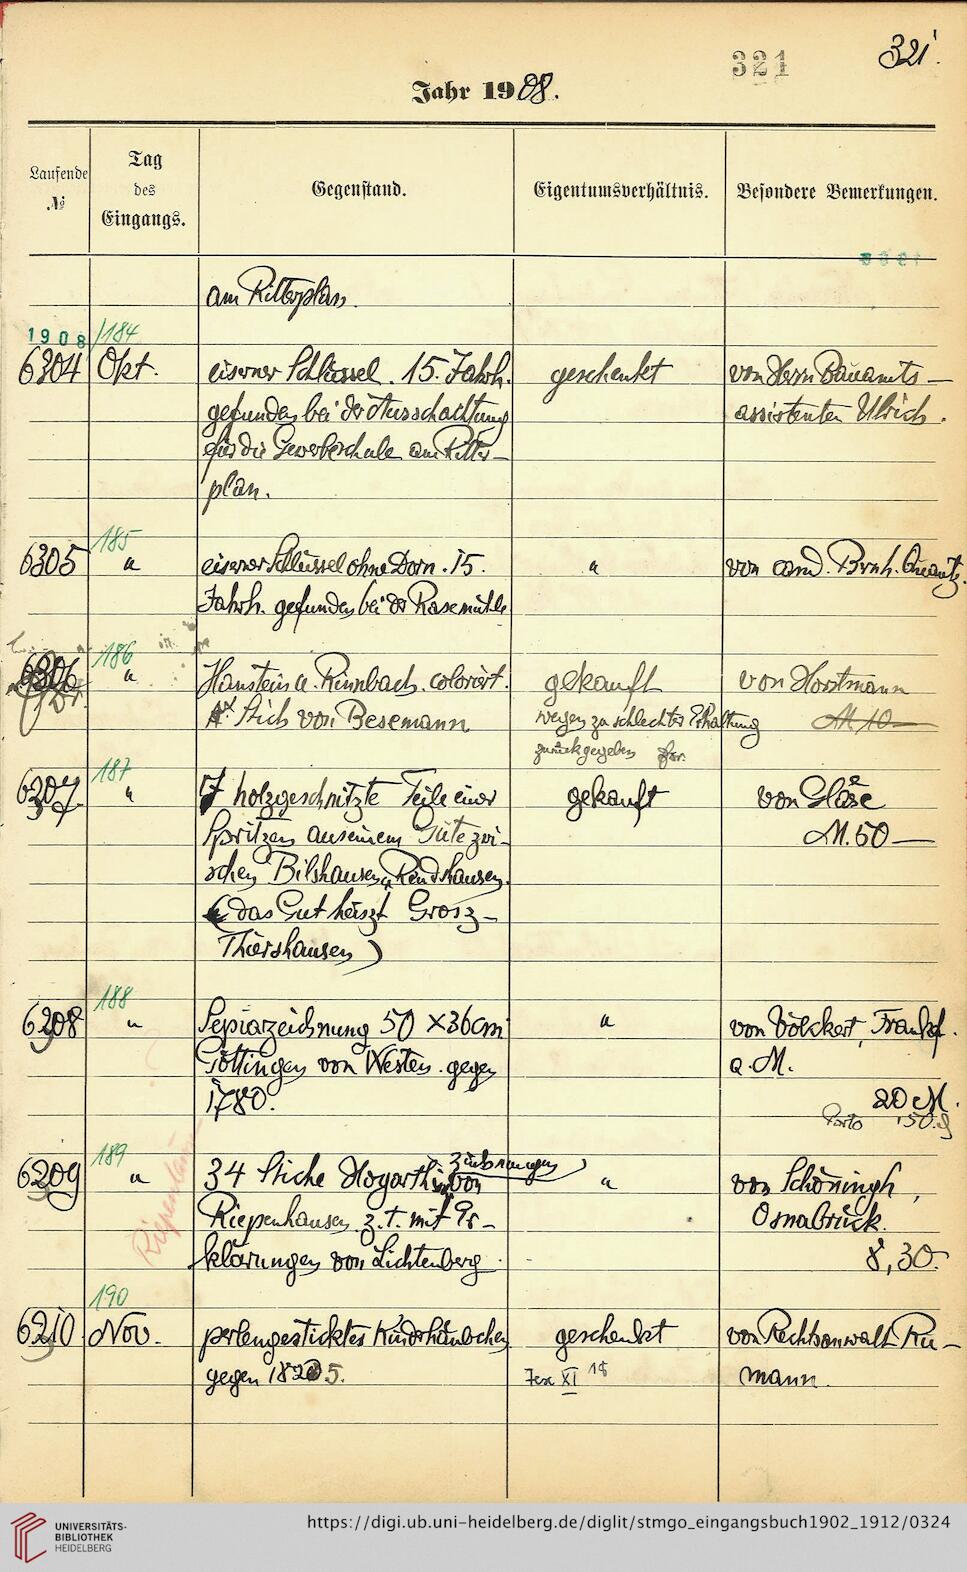 321
321.
Jahr 1908.
Laufende
№
Tag
des
Eingangs.
Gegenstand.
Eigentumsverhältnis.
Besondere Bemerkungen.
am Ritterplan.
1908/184
6304 Okt. eiserner Schlüssel. 15. Jahrh. geschenkt von Herrn Bauamts-
gefunden bei der Ausschachtung assistenten Ulrich.
für die Gewerbeschule am Ritter-
plan.
185
6305 " eiserner Schlüssel ohne Dorn. 15. " von cand. Brnh. Quantz.
Jahrh. gefunden bei der Rasemühle
186
6306 " Hanstein u. Rinnbach. coloriert. gekauft von Horstmann
Stich von Besemann wegen zu schlechter Erhaltung M 10—
zurückgegeben
187
6307 " 7 holzgeschnitzte Teile einer gekauft von Gläse
Spritzen aus einem Gute zwi- M. 50—
schen Bilshausen u. Rendshausen.
(das Gut heiszt Grosz-
Thiershausen)
188
6308 " Sepiazeichnung 50 x 36 cm " von Völckert, Frankf.
Göttingen von Westen. gegen a. M.
1780. 20 M.
Porto 50
189
6209 " 34 Stiche Hogarth von "  von Schöningh,
Riepenhausen z. t. mit Er- Osnabrück.
klärungen von Lichtenberg. 8,30.
Riepenhausen
190
6210 Nov. perlengesticktes Kinderhäubchen geschenkt von Rechtsanwalt Ru-
gegen 1825. XI 18 mann.
UNIVERSITÄTS-
BIBLIOTHEK
HEIDELBERG
https://digi.ub.uni-heidelberg.de/diglit/stmgo_eingangsbuch1902_1912/0324